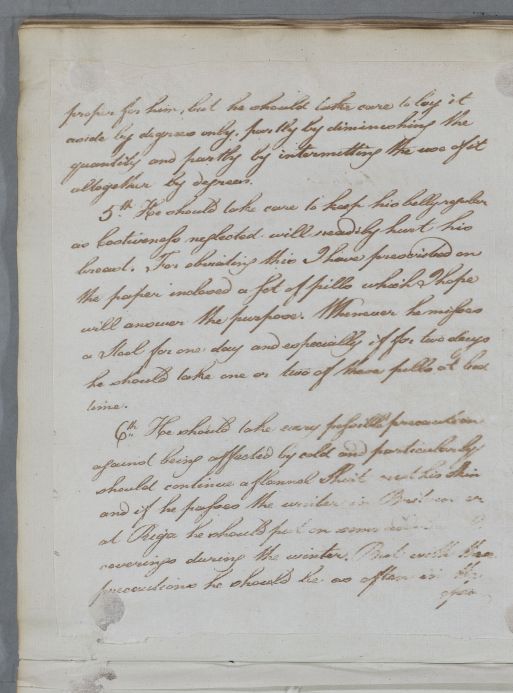 proper for him, but he should take care to lay it
aside by degrees only, partly by diminishing the
quantity and partly by intermitting the use of it
altogether by degrees.
5.th He should take care to keep his belly regular
as Costiveness neglected will readily hurt his
breast. For obviating this I have prescribed on
the paper inclosed a sot of pills which I hope
will answer the purpose. Whenever he misses
a Stool for one day and especially if for two days
he should take one or two of these pills at bed
time.
6.th He should take every possible precaution
against being affected by cold and particularly
should continue a flannel Shirt next his Skin
and if he passes the winter in Britain or
at Riga he should put on some
coverings during the winter. But with these
precautions he should be as often in the
open